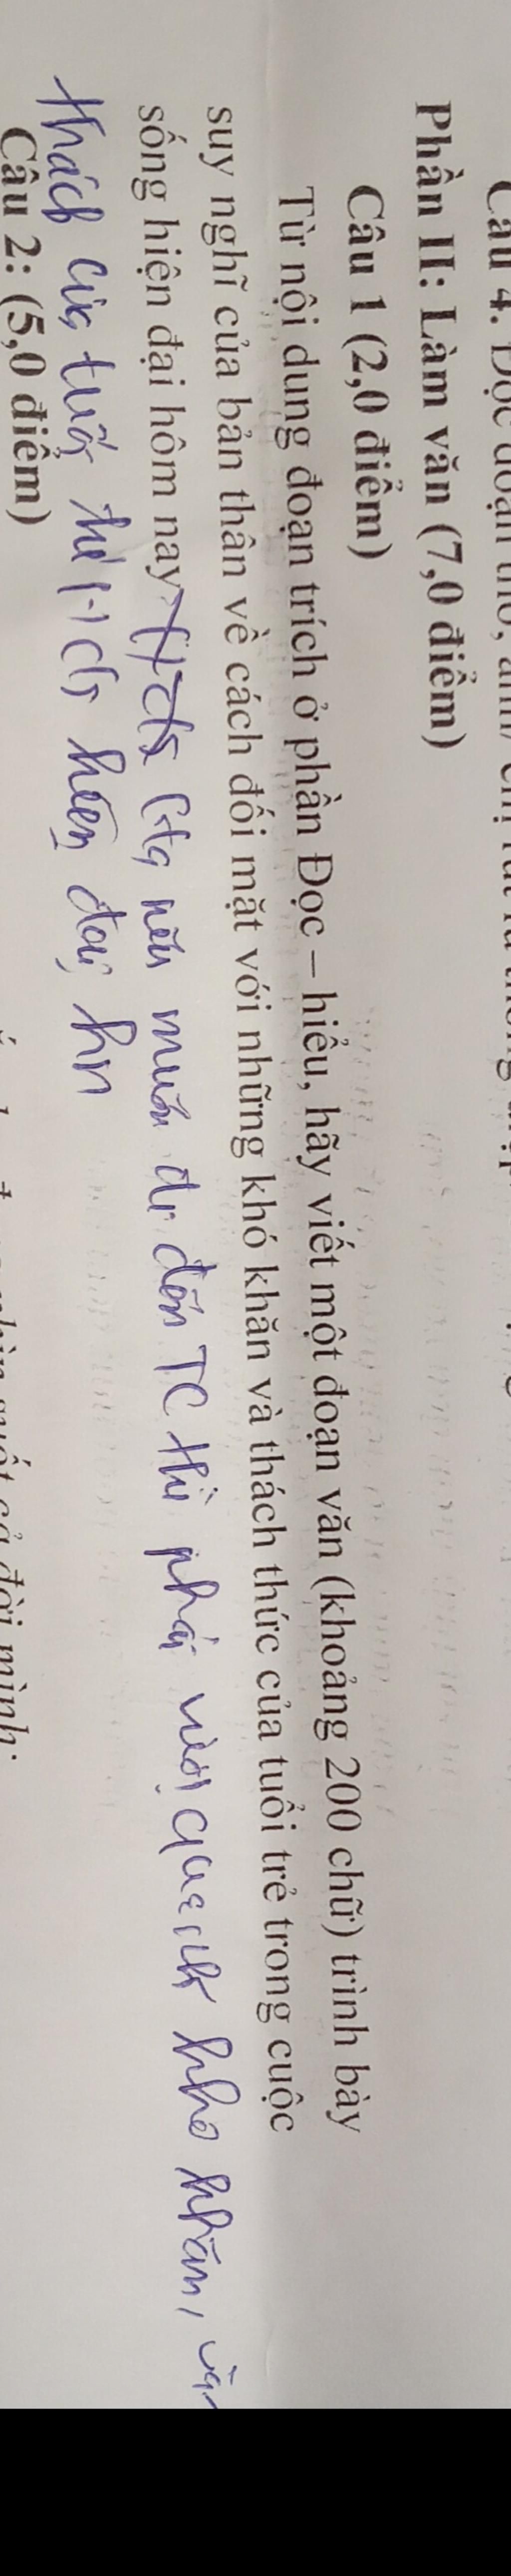 Phần II: Làm văn (7,0 điểm)
Câu 1 (2,0 điểm)
Từ nội dung đoạn trích ở phần Đọc – hiểu, hãy viết một đoạn văn (khoảng 200 chữ) trình bày
suy nghĩ của bản thân về cách đối mặt với những khó khăn và thách thức của tuổi trẻ trong cuộc
sống hiện đại hôm nay
nếu muốn đi đến TC thì phải vượt qua khó khăn, và
thách của tuổi hiện đại hn
Câu 2: (5,0 điểm)
đời mình: